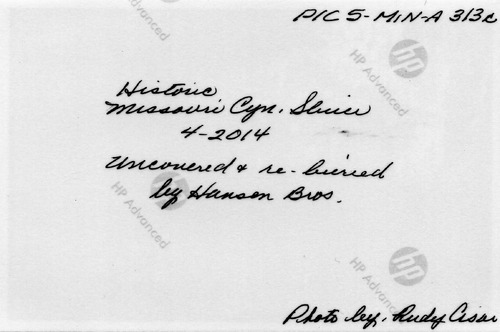 PIC 5-MIN-A 313c
Historic
Missouri Cyn. Sluice
4-2014
Uncovered & re-buried
by Hansen Bros.
Photo by. Rudy Cisar
hp
HP Advanced
hp
HP Advanced
hp
HP Advanced
hp
HP Advanced